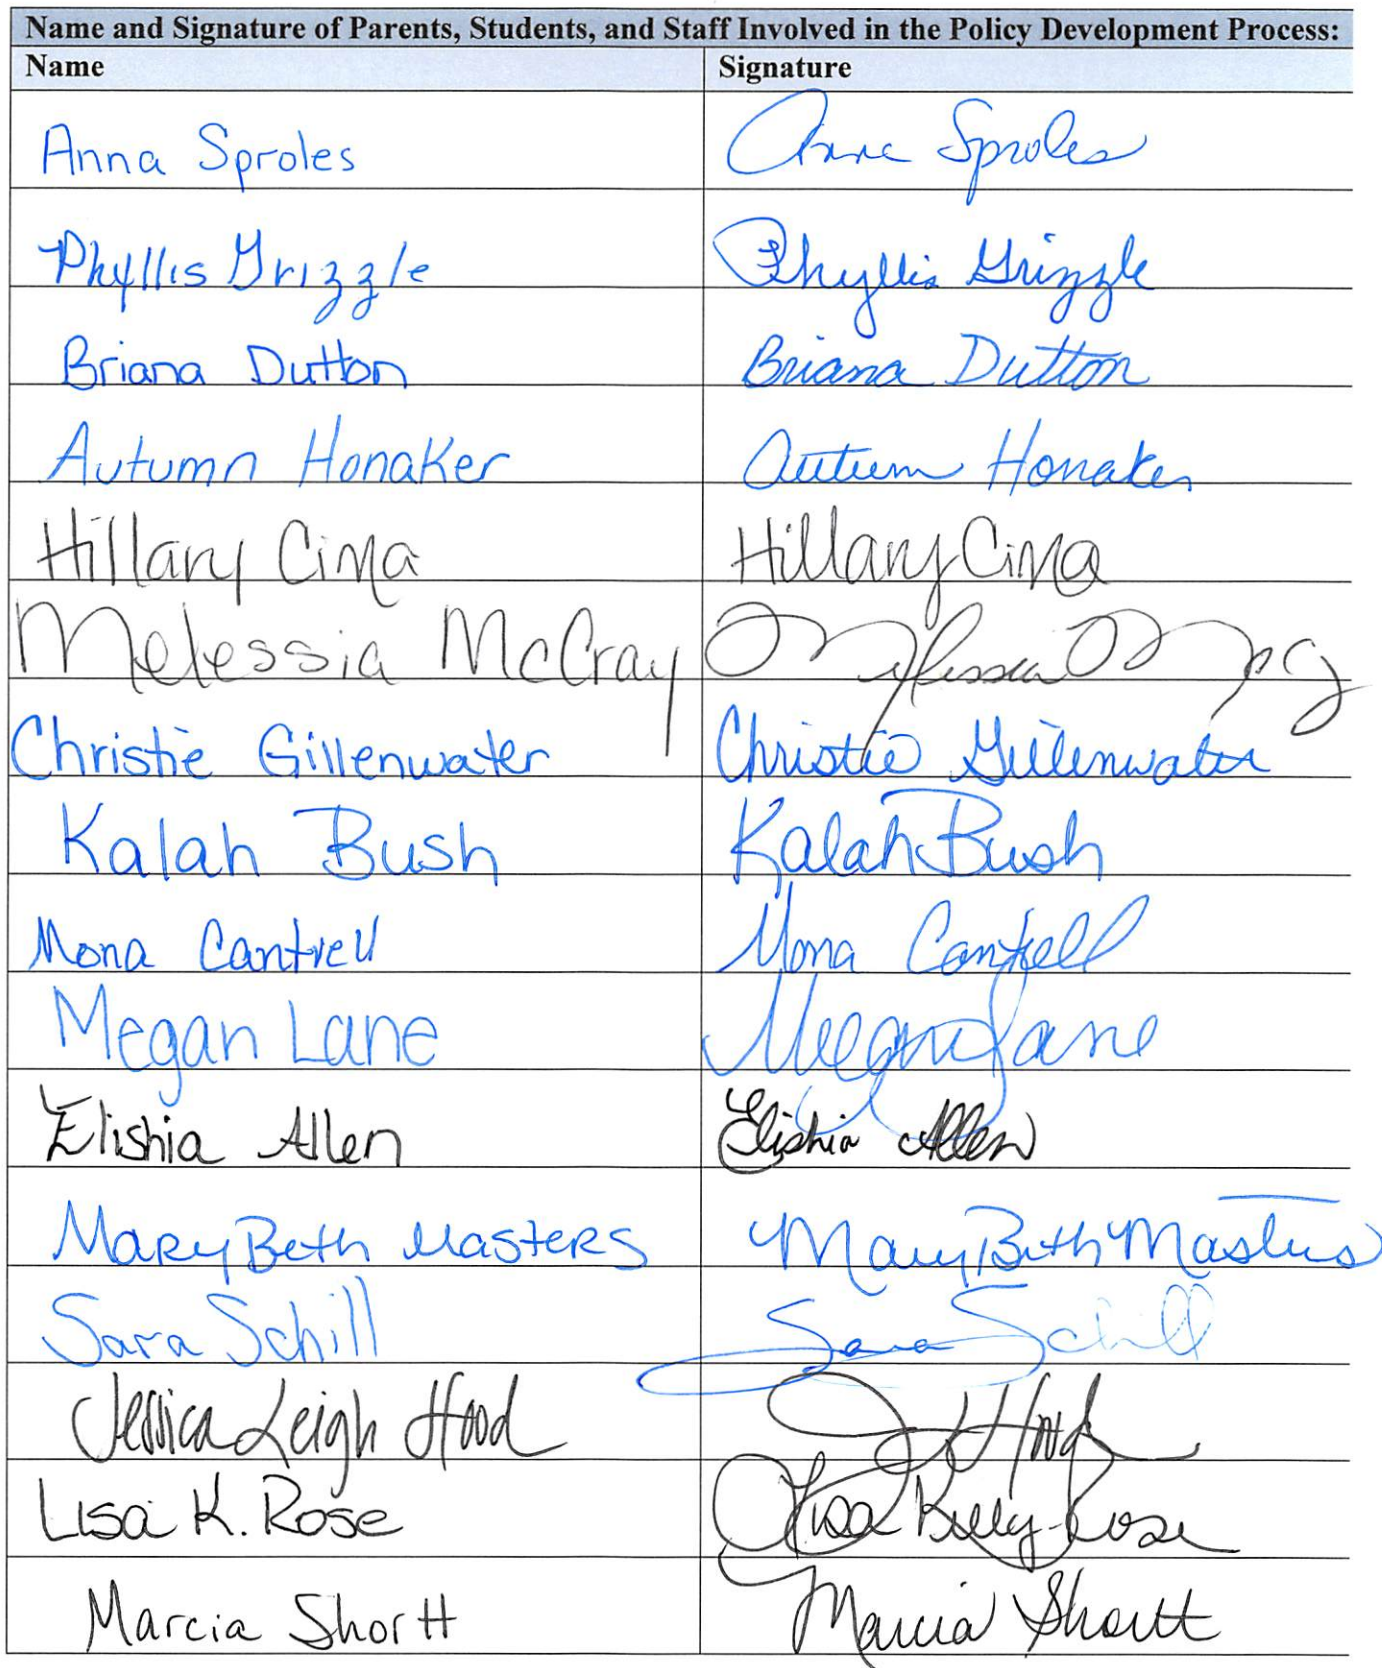 Name and Signature of Parents, Students, and Staff Involved in the Policy Development Process:
Name Signature
Anna Sproles Anna Sproles
Phyllis Grizzle Phyllis Grizzle
Briana Dutton Briana Dutton
Autumn Honaker Autumn Honaker
Hillary Cima Hillary Cima
Melessia McCray Melessia
Christie Gillenwater Christie Gillenwater
Kalah Bush Kalah Bush
Mona Cantrell Mona Cantrell
Megan Lane Megan Lane
Elishia Allen Elishia Allen
MaryBeth Masters MaryBeth Masters
Sara Schill Sara Schill
Jessica Leigh Hood J Hood
Lisa K. Rose Lisa Kelly-Rose
Marcia Shortt Marcia Shortt